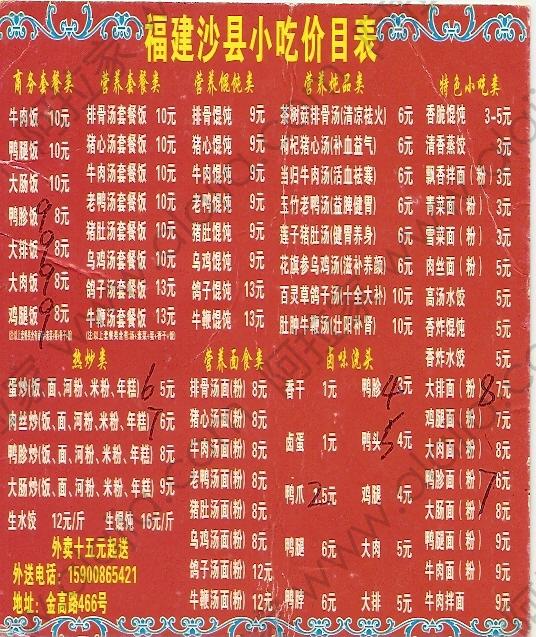 福建沙县小吃价目表
商务套餐类
牛肉饭 10元
鸭腿饭 10元
大肠饭 10元
鸭胗饭 8元 9
大排饭 8元 9
大肉饭 8元 9
鸡腿饭 8元 9
营养套餐类
排骨汤套餐饭 10元
猪心汤套餐饭 10元
牛肉汤套餐饭 10元
老鸭汤套餐饭 10元
猪肚汤套餐饭 10元
乌鸡汤套餐饭 10元
鸽子汤套餐饭 13元
牛鞭汤套餐饭 13元
营养馄饨类
排骨馄炖 9元
猪心馄炖 9元
牛肉馄炖 9元
老鸭馄炖 9元
猪肚馄炖 9元
乌鸡馄炖 9元
鸽子馄炖 13元
牛鞭馄炖 13元
营养炖品类
茶树菇排骨汤(清凉祛火) 6元
枸杞猪心汤(补血益气) 6元
当归牛肉汤(活血祛寒) 6元
玉竹老鸭汤(益脾健胃) 6元
莲子猪肚汤(健胃养身) 6元
花旗参乌鸡汤(滋补养颜) 6元
百灵草鸽子汤(十全大补) 10元
肚肿牛鞭汤(壮阳补肾) 10元
特色小吃类
香脆馄炖 3-5元
清香蒸饺 3元
飘香拌面(粉) 3元
青菜面(粉) 3元
雪菜面(粉) 3元
肉丝面(粉) 5元
高汤水饺 5元
香炸馄炖 5元
香炸水饺 5元
大排面(粉) 7元 8
鸡腿面(粉) 7元
大肉面(粉) 8元
鸭胗面(粉) 6元 7
大肠面(粉) 8元
鸭腿面(粉) 9元
牛肉面(粉) 9元
牛肉拌面 9元
热炒类
蛋炒(饭、面、河粉、米粉、年糕) 5元 6
肉丝炒(饭、面、河粉、米粉、年糕) 6元 7
鸭胗炒(饭、面、河粉、米粉、年糕) 8元
大肠炒(饭、面、河粉、米粉、年糕) 9元
生水饺 12元/斤 生馄炖 16元/斤
外卖十五元起送
外送电话：15900865421
地址：金高路466号
营养面食类
排骨汤面(粉) 8元
猪心汤面(粉) 8元
牛肉汤面(粉) 8元
老鸭汤面(粉) 8元
猪肚汤面(粉) 8元
乌鸡汤面(粉) 8元
鸽子汤面(粉) 12元
牛鞭汤面(粉) 12元
卤味浇头
香干 1元 鸭胗 3元 4
卤蛋 1元 鸭头 4元 5
鸭爪 2.5元 鸡腿 4元
鸭腿 6元 大肉 5元
鸭脖 6元 大排 5元